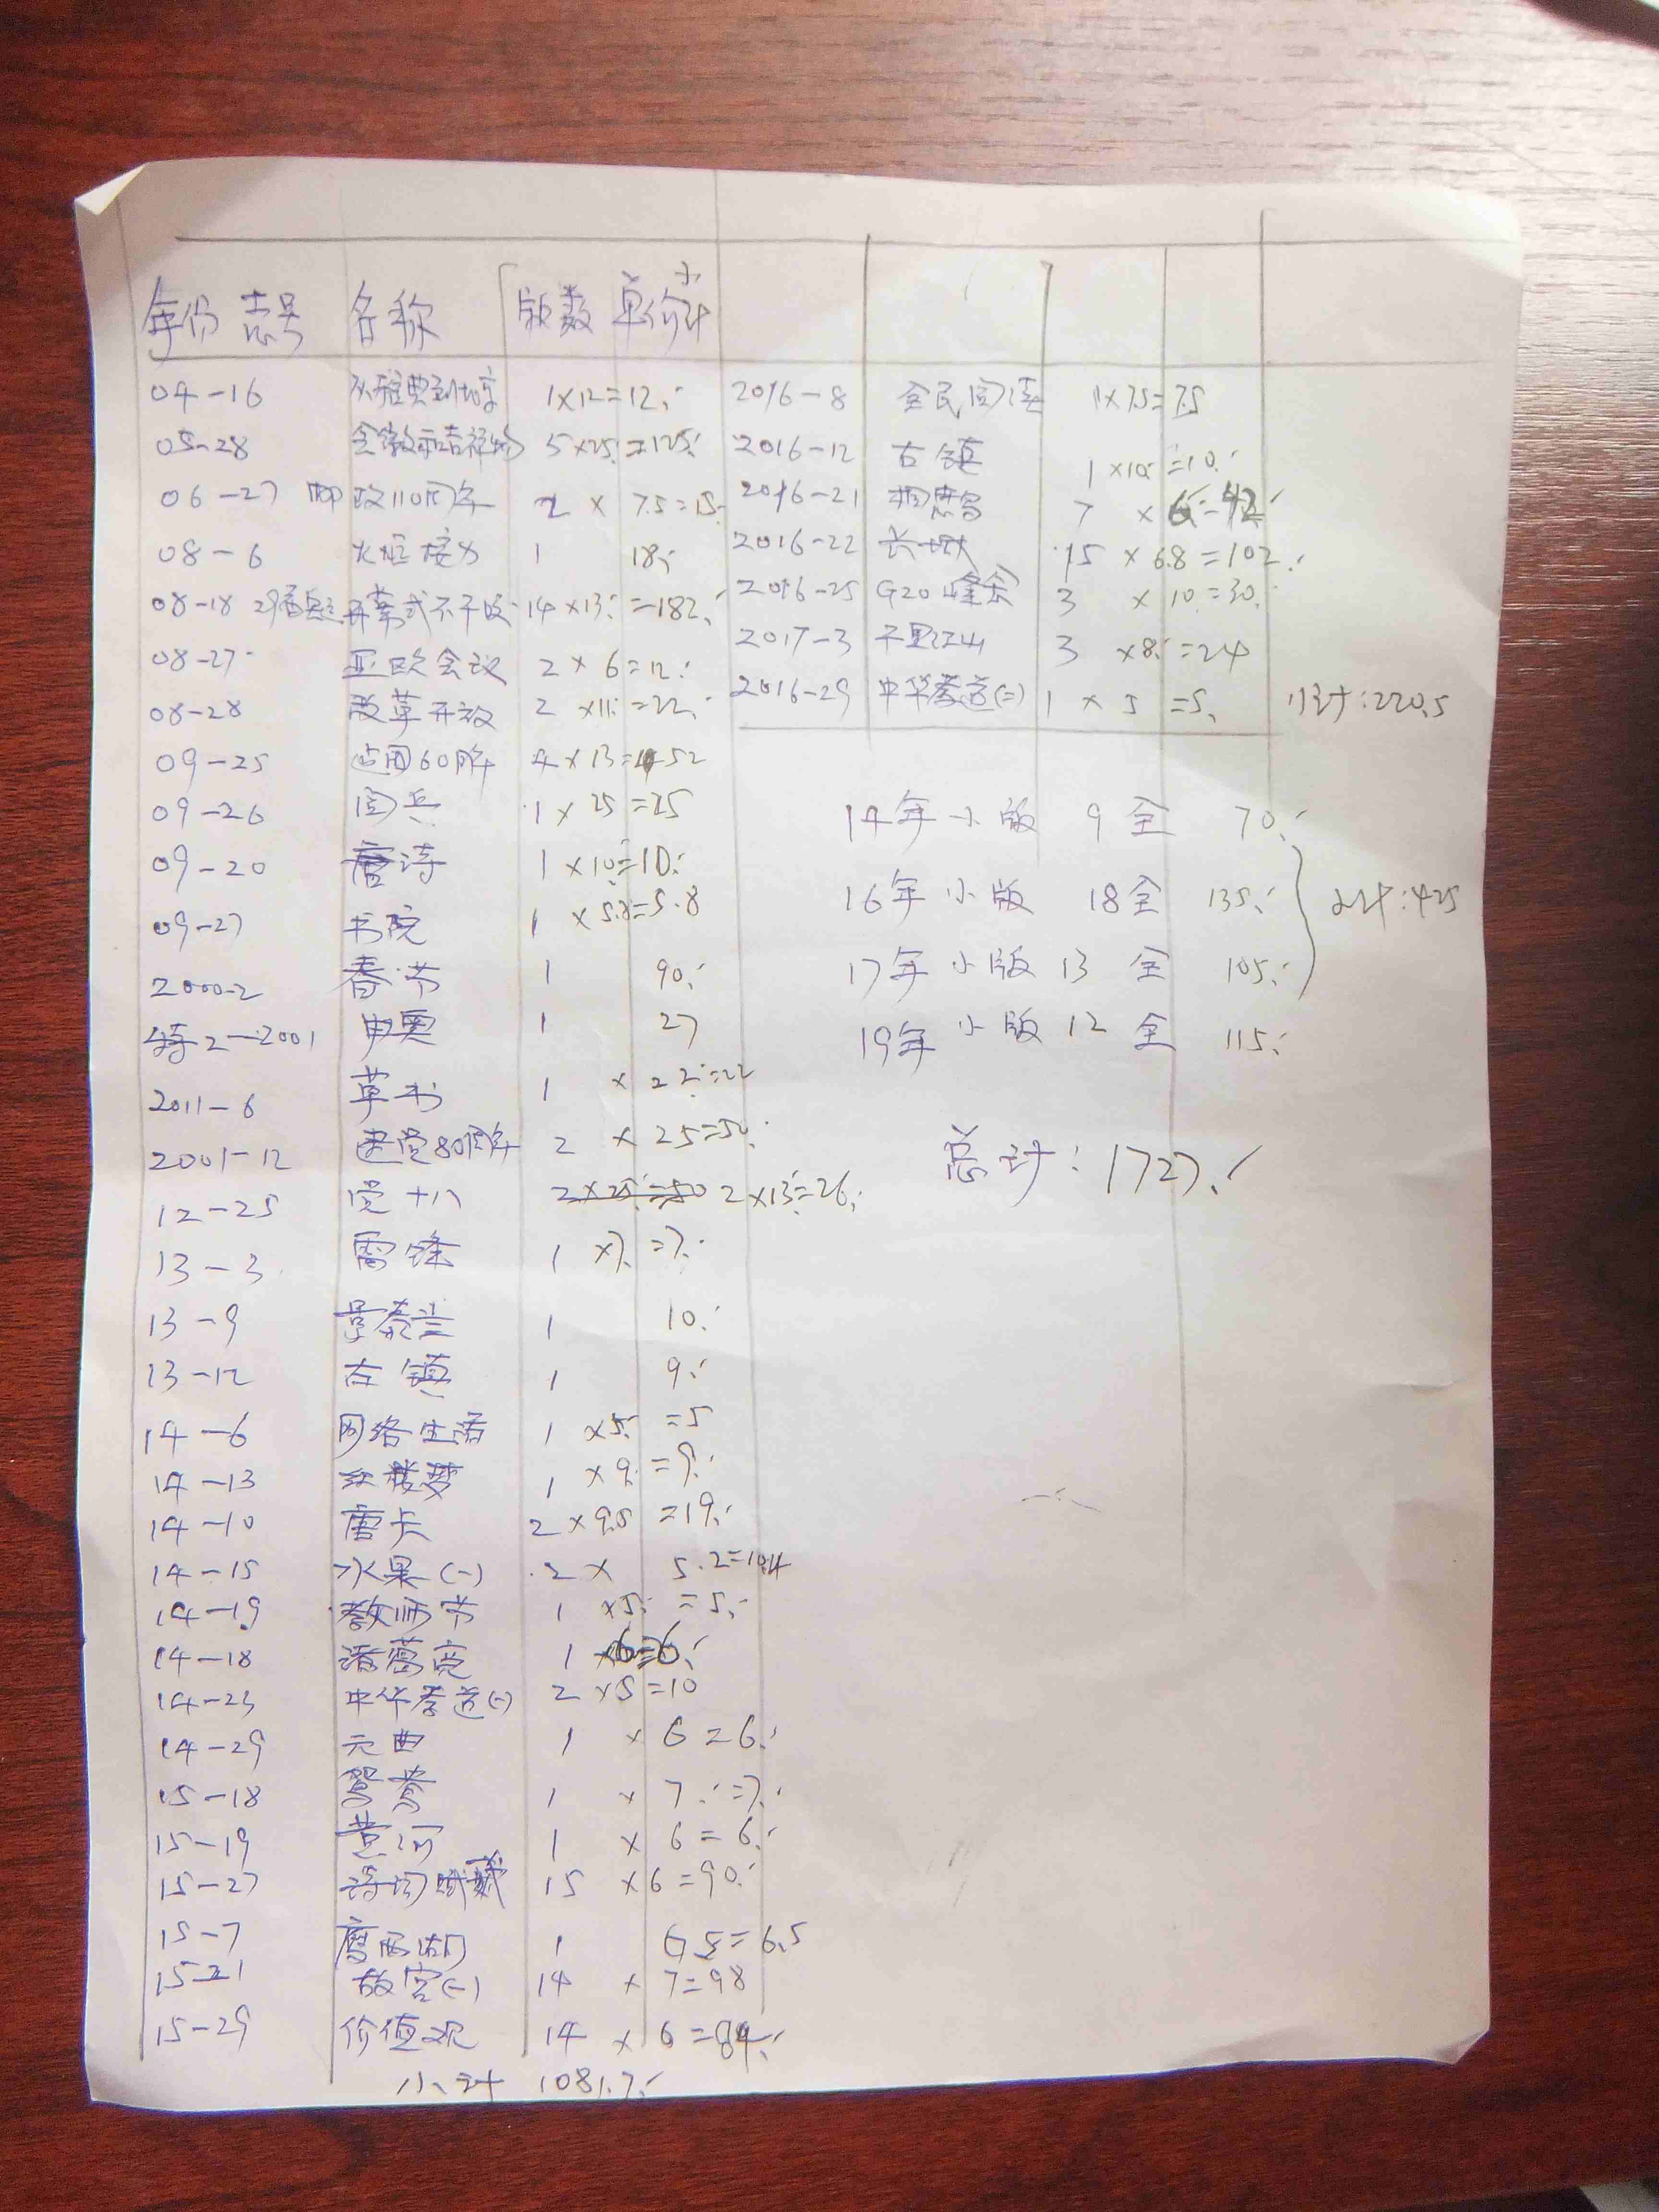 年份 志号 名称 版数 单价 小计
04-16 从雅典到北京 1×12=12.
05-28 会徽和吉祥物 5×25=125.
06-27 邮政110周年 2 × 7.5=15.
08-6 火炬接力 1 18.
08-18 29届奥运 开幕式不干胶 14×13=182.
08-27 亚欧会议 2×6=12.
08-28 改革开放 2×11=22.
09-25 建国60周年 4×13=52
09-26 阅兵 1×25=25
09-20 唐诗 1×10=10.
09-27 书院 1×5.8=5.8
2000-2 春节 1 90.
特2-2001 申奥 1 27
2011-6 草书 1 × 22=22
2001-12 建党80周年 2 × 25=50.
12-25 党十八 2×25=50 2×13=26.
13-3 雷锋 1 ×7=7.
13-9 景泰兰 1 10.
13-12 古镇 1 9.
14-6 网络生活 1 ×5 =5
14-13 红楼梦 1 ×9 =9.
14-10 唐卡 2×9.5 =19.
14-15 水果(一) 2× 5.2=10.4
14-19 教师节 1 ×5 =5.
14-18 诸葛亮 1 ×6=6.
14-23 中华孝道(一) 2 ×5=10
14-29 元曲 1 × 6=6.
15-18 鸳鸯 1 × 7.=7.
15-19 黄河 1 × 6=6.
15-27 诗词赋 15 ×6=90.
15-7 瘦西湖 1 6.5=6.5
15-21 故宫(一) 14 × 7=98
15-29 价值观 14 × 6=84.
小计 1081.7.
2016-8 全民阅读 1×7.5=7.5
2016-12 古镇 1×10=10.
2016-21 相思鸟 7 × 6=42.
2016-22 长城 15×6.8=102.
2016-25 G20峰会 3 ×10=30.
2017-3 千里江山 3 ×8=24
2016-29 中华孝道(二) 1 × 5 =5. 小计:220.5
14年小版 9全 70.
16年小版 18全 135. 小计:425
17年小版 13全 105.
19年小版 12全 115.
总计:1727.